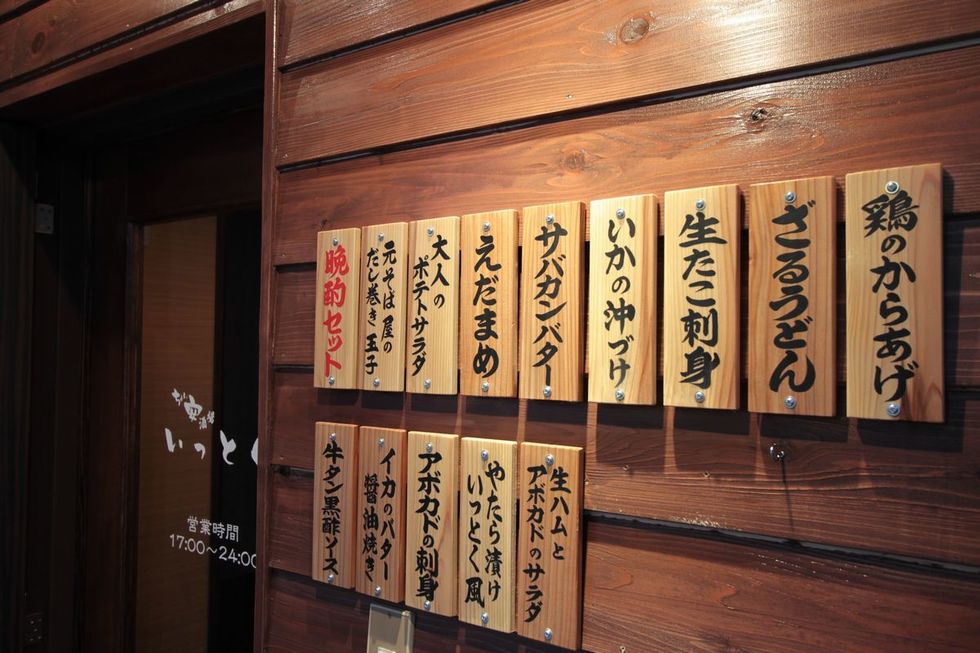 鶏のからあげ
ざるうどん
生たこ刺身
いかの沖づけ
サバガンバター
えだまめ
大人の
ポテトサラダ
元そば屋の
だし巻き玉子
晩酌セット
生ハムと
アボカドのサラダ
やたら漬け
いっとく風
アボカドの刺身
イカのバター
醤油焼き
牛タン黒酢ソース
いっとく
営業時間
17:00〜24:00